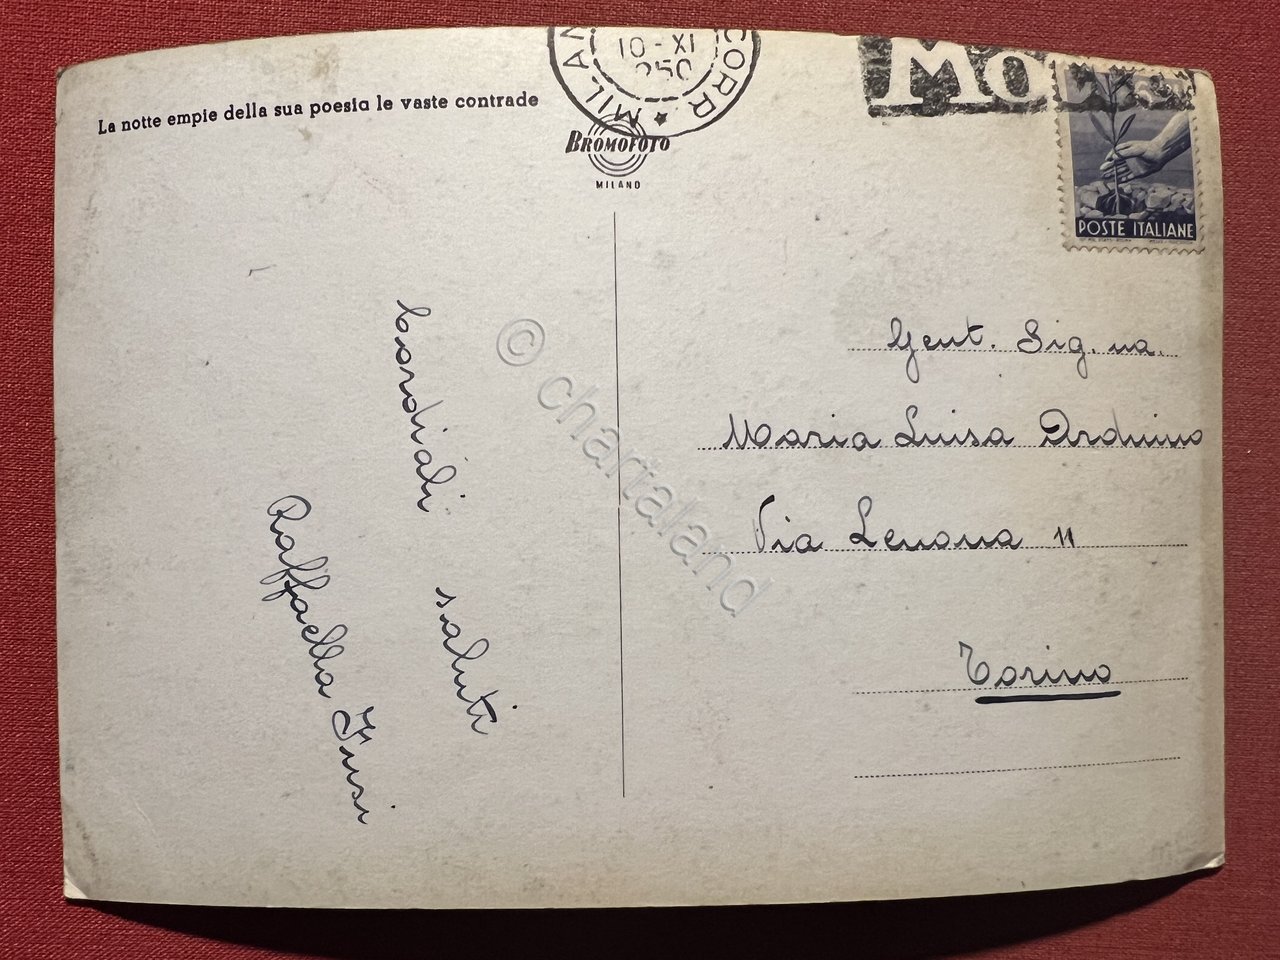 La notte empie della sua poesia le vaste contrade
MILAN
CORR.
10-XI
950
BROMOFOTO
MILANO
MO
POSTE ITALIANE
Gent. Sig.na.
Maria Luisa Arduino
Via Lenona 11
Torino
Cordiali saluti
Raffaella
© chartaland